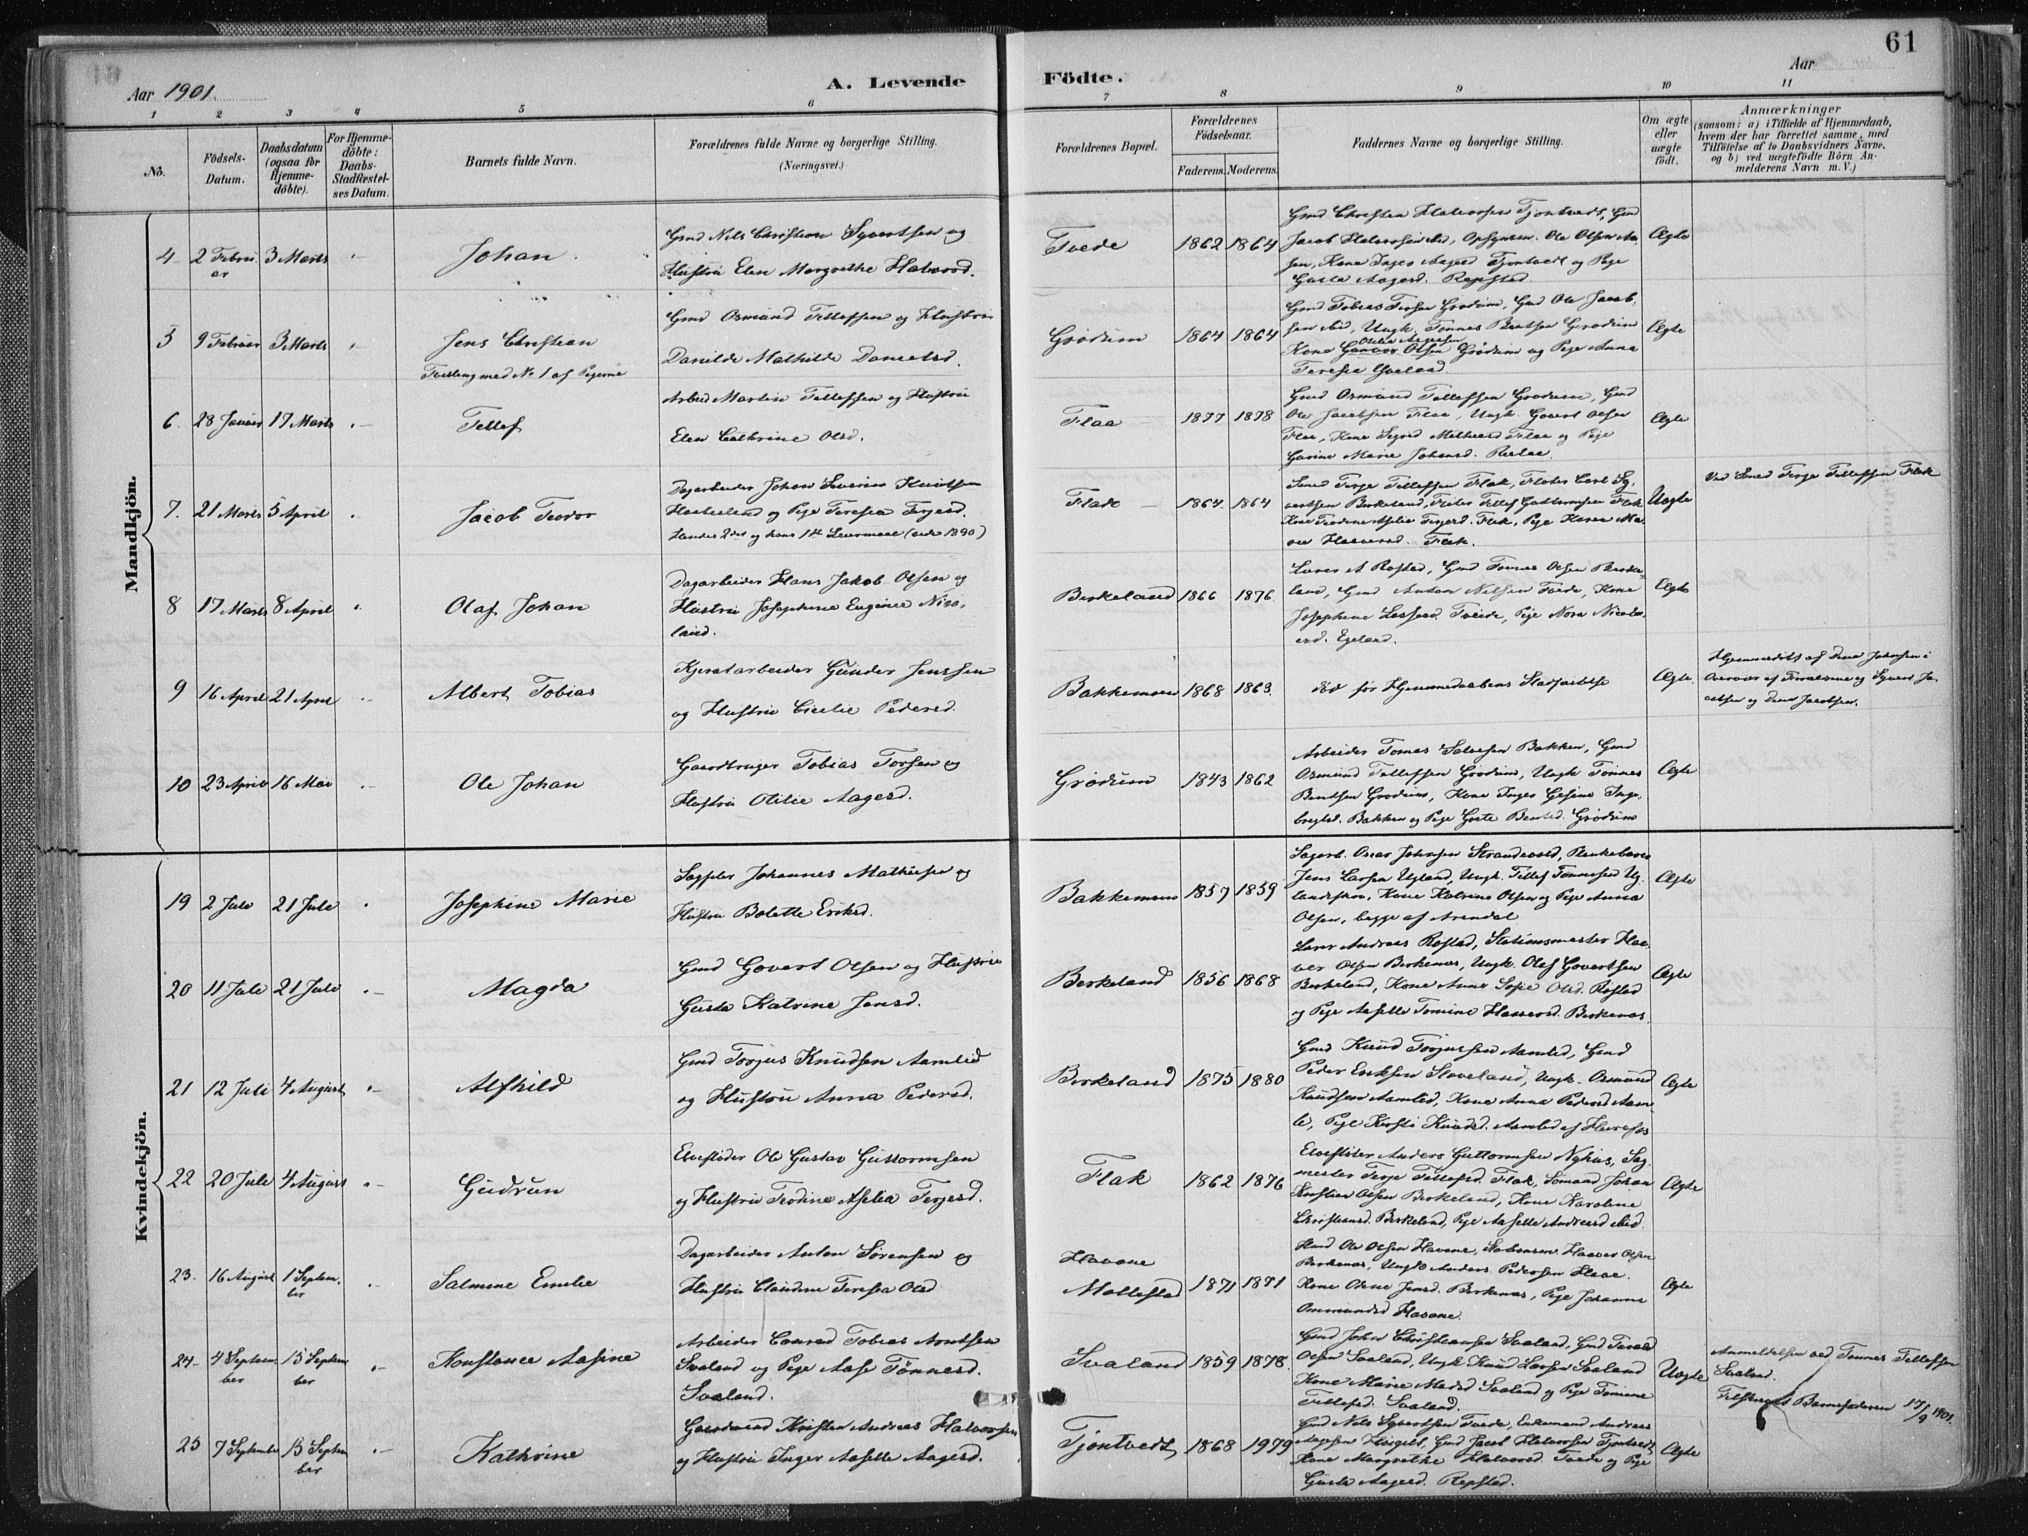 61
Aar 1901.
A. Levende Födte.
Aar
1 2 3 4 5 6 7 8 9 10 11
No.
Födsels-Datum.
Daabsdatum (ogsaa for Hjemme-döbte).
For Hjemme-döbte: Daabs-Stadfæstel-ses Datum.
Barnets fulde Navn.
Forældrenes fulde Navne og borgerlige Stilling. (Næringsvei.)
Forældrenes Bopæl.
Forældrenes Födselsaar.
Faderens. Moderens.
Faddernes Navne og borgerlige Stilling.
Om ægte eller uægte födt.
Anmærkninger
(saasom: a) i Tilfælde af Hjemmedaab,
hvem der har forrettet samme, med
Tilföielse af to Daabsvidners Navne,
og b) ved uægtefödte Börn An-
melderens Navn m. V.)
Mandkjön.
4 2 Febru
ar 3 Marts
Johan
Gmd Nils Christian Syvertsen og
Hustru Elen Margrethe Halvorsd.
Tvede 1862 1864
Gmd Christen Halvorsen Tjontvedt, Gmd
Jacob Halvorsen ibd, Opsynsm. Ole Olsen Aa-
sen, Kone Inger Aagesd Tjontvedt og Pige
Gusta Aagesd. Repstad.
Ægte
5 9 Februar 3 Marts
Jens Christian
Tvilling med No 1 af Pigerne
Gmd Osmund Tellefsen og Hustru
Danilde Mathilde Danielsd.
Grödum 1864 1864
Gmd Tobias Torsen Grödum, Gmd Ole Jacob-
sen ibd, Ungk. Tönnes Bentsen Grödum
Otilie Aagesen
Kone Olsen Grödum og Pige Anna
Teresia
Ægte
6 28 Januar 17 Marts
Tellef
Arbeid Martin Tellefsen og Hustru
Elen Cathrine Olsd.
Flaa 1877 1878
Gmd Osmund Tellefsen Grödum, Gmd
Ole Jacobsen Flaa, Ungk. Govert Olsen
Flaa, Kone Sigrid Flaa og Pige
Gurine Marie Johansd.
Ægte
7. 21 Marts 5 April
Jacob Teodor
Dagarbeider Johan Severin Knutsen
og Pige Teresia Tergesd.
Hendes 2det og hans 1ste Leiermaal (ende 1890)
Flak 1864 1864
Smed Terje Tellefsen Flak, Fløter Carl Sy-
vertsen Birkeland, Fløter Tellef Guttormsen Flak
Kone Teodine Aselie Tergesd. Flak, Pige Karen Ma-
rie Flak.
Uægte
Ved Smed Terje Tellefsen Flak
8 17 Marts 8 April
Olaf Johan
Dagarbeider Hans Jakob Olsen og
Hustru Josephine Eugenie Nico-
laisd.
Birkeland 1866 1876
Lærer A Rostad, Gmd Tomes Olsen Birke-
land, Gmd Anton Nilsen Tvede, Kone
Josephine Tveide, Pige Nora Nicola-
isd. Egeland.
Ægte
9 16 April 21 April
Albert Tobias
Kjeratarbeider Gunder Jenssen
og Hustru Cicelie Pedersd.
Bakkemoen 1868 1863
död för Hjemmedaabens Stadfæstelse
Ægte.
Hjemmedöbt af Jacobsen i
Overvær af Forældrene og Syvert Ja-
cobsen og Jacobsen.
10 23 April 16 Mai
Ole Johan
Gaardbruger Tobias Torsen og
Hustru Otilie Aagesd.
Grödum 1843 1862
Arbeider Tomas Salvesen Bakken, Gmd
Osmund Tellefsen Grödum, Ungk Tönnes
Bentsen Grödum, Kone Inger Gesine Inge-
brigtsd. Bakken og Pige Grete Bentsd. Grödum
Ægte
Kvindekjön.
19 2 Juli 21 Juli
Josephine Marie
Johannes Mathiesen og
Hustru Bolette Eriksd.
Bakkemoen 1857 1859
Sagarb. Oscar Johnsen Strandvold, Plankebærer
Jens Larsen Ugland, Ungk. Tellef Tönnesen Ug-
landskar, Kone Katrine Olsen og Pige Anna
Olsen, begge af Arendal
Ægte
20 11 Juli 21 Juli
Magda
Gmd Govert Olsen og Hustru
Gusta Katrine Jensd.
Birkeland 1856 1868
Lærer Andreas Rostad, Stationsmester Haa-
ver Olsen Birkenæs, Ungk. Olaf Govertsen
Birkeland, Kone Anne Sofie Olsd. Rostad
og Pige Aaselle Tomine Birkenæs.
Ægte
21 12 Juli 4 August
Alfhild
Gmd Torjus Knudsen Aamlid
og Hustru Anna Pedersd.
Birkeland 1875 1880
Gmd Knud Torjussen Aamlid, Gmd
Peder Eriksen Stoveland, Ungk. Osmund
Knudsen Aamlid, Kone Anna Pedersd Aam-
li, Pige Kirsti Knudsd. Aamlid af Herefos
Ægte
22 20 Juli 4 August
Gudrun
Elvefløder Ole Gustav Guttormsen
og Hustru Teodine Aselia Tergesd.
Flak 1862 1876
Elvefløter Anders Guttormsen Nyhus, Sag-
mester Terje Tellefsen Flak, Sömand Johan
Kristian Olsen Birkeland, Kone Karoline
Christiansd. Birkeland, Pige Aaselle Andreasd ibid.
Ægte
23 16 August 1 Septem-
ber
Salmine Emilie
Dagarbeider Anton Sörensen og
Hustru Claudine Teresia Olsd
Havane
Mollestad 1871 1871
Ole Olsen Havane, Haaver Olsen
Birkenæs, Ungk Anders Pedersen
Kone Jensd. Birkenæs, Pige Johanne
Ommundsd Havane.
Ægte
24 4 Septem-
ber 15 Septem
ber
Konstance Aasine
Arbeider Conrad Tobias Arntsen
Svaland og Pige Aase Tönnesd.
Svaland.
Svaland 1859 1878
Gmd John Christiansen Svaland, Gmd
Olsen Svaland, Ungk Knud Larsen Svaland
Kone Marie Madsd Svaland og Pige Tomine
Tellefsd. Svaland.
Uægte
Anmeldelsen ved Tönnes Tellefsen
Svaland.
Tilspurgt Barnefaderen 17/9 1901.
25 7 September 15 Septem
ber
Kathrine
Gaardmand Kristen Andreas Halvorsen
og Hustru Inger Aaselle Aagesd.
Tjontvedt 1868 1979
Gmd Nils Syvertsen Tvede, Enkemand Andreas
Aagesen Gmd Jacob Halvorsen Tjontvedt
Kone Margrethe Halvorsd. Tvede og Pige
Gusta Aagesd. Repstad.
Ægte